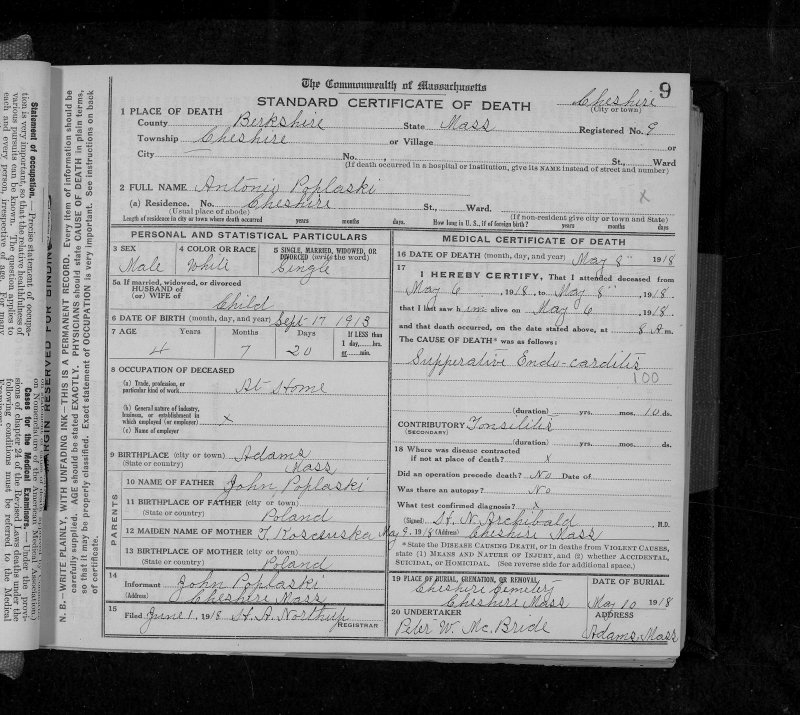 The Commonwealth of Massachusetts
9
STANDARD CERTIFICATE OF DEATH
Cheshire
(City or town)
1 PLACE OF DEATH
County Berkshire State Mass Registered No. 9
Township Cheshire or Village or
City No. St., Ward
(If death occurred in a hospital or institution, give its NAME instead of street and number)
2 FULL NAME Antoniv Poplaski
x
(a) Residence. No. Cheshire St., Ward.
(Usual place of abode) (If non-resident give city or town and State)
Length of residence in city or town where death occurred years months days. How long in U. S., if of foreign birth? years months days
PERSONAL AND STATISTICAL PARTICULARS
3 SEX 4 COLOR OR RACE 5 SINGLE, MARRIED, WIDOWED, OR
DIVORCED (write the word)
Male White Single
5a If married, widowed, or divorced
HUSBAND of
(or) WIFE of
Child
6 DATE OF BIRTH (month, day, and year) Sept 17 1913
7 AGE Years Months Days If LESS than
1 day, hrs.
or min.
4 7 20
8 OCCUPATION OF DECEASED
(a) Trade, profession, or
particular kind of work At Home
(b) General nature of industry,
business, or establishment in
which employed (or employer) x
(c) Name of employer
9 BIRTHPLACE (city or town) Adams
(State or country) Mass
PARENTS
10 NAME OF FATHER John Poplaski
11 BIRTHPLACE OF FATHER (city or town)
(State or country) Poland
12 MAIDEN NAME OF MOTHER
13 BIRTHPLACE OF MOTHER (city or town)
(State or country) Poland
14
Informant John Poplaski
(Address) Cheshire Mass
15
Filed June 1, 1918 H. A. Northup
REGISTRAR
MEDICAL CERTIFICATE OF DEATH
16 DATE OF DEATH (month, day, and year) May 8" 1918
17
I HEREBY CERTIFY, That I attended deceased from
May 6, 1918, to May 8", 1918
that I last saw him alive on May 6, 1918
and that death occurred, on the date stated above, at 8 A m.
The CAUSE OF DEATH* was as follows:
Supperative Endo-carditis
100
(duration) yrs. mos. 10 ds.
CONTRIBUTORY Tonsilitis
(SECONDARY)
(duration) yrs. mos. ds.
18 Where was disease contracted
if not at place of death? x
Did an operation precede death? No Date of
Was there an autopsy? No
What test confirmed diagnosis? x
(Signed) H. N. Archibald M.D.
May 9, 1918 (Address) Cheshire Mass
* State the DISEASE CAUSING DEATH, or in deaths from VIOLENT CAUSES,
state (1) MEANS AND NATURE OF INJURY, and (2) whether ACCIDENTAL,
SUICIDAL, or HOMICIDAL. (See reverse side for additional space.)
19 PLACE OF BURIAL, CREMATION, OR REMOVAL DATE OF BURIAL
Cheshire Cemetery
Cheshire Mass May 10 1918
20 UNDERTAKER ADDRESS
Peter W. Mc.Bride Adams, Mass
N. B.—WRITE PLAINLY, WITH UNFADING INK—THIS IS A PERMANENT RECORD. Every item of information should be
carefully supplied. AGE should be stated EXACTLY. PHYSICIANS should state CAUSE OF DEATH in plain terms,
so that it may be properly classified. Exact statement of OCCUPATION is very important. See instructions on back
of certificate.
MARGIN RESERVED FOR BINDING
Statement of occupation.—Precise statement of occupa-
tion is very important, so that the relative healthfulness of
various pursuits can be known. The question applies to
each and every person, irrespective of age. For many
Cases for the Medical Examiners.—Under the provi-
sions of chapter 24 of the Revised Laws deaths under the
following conditions must be referred to the Medical